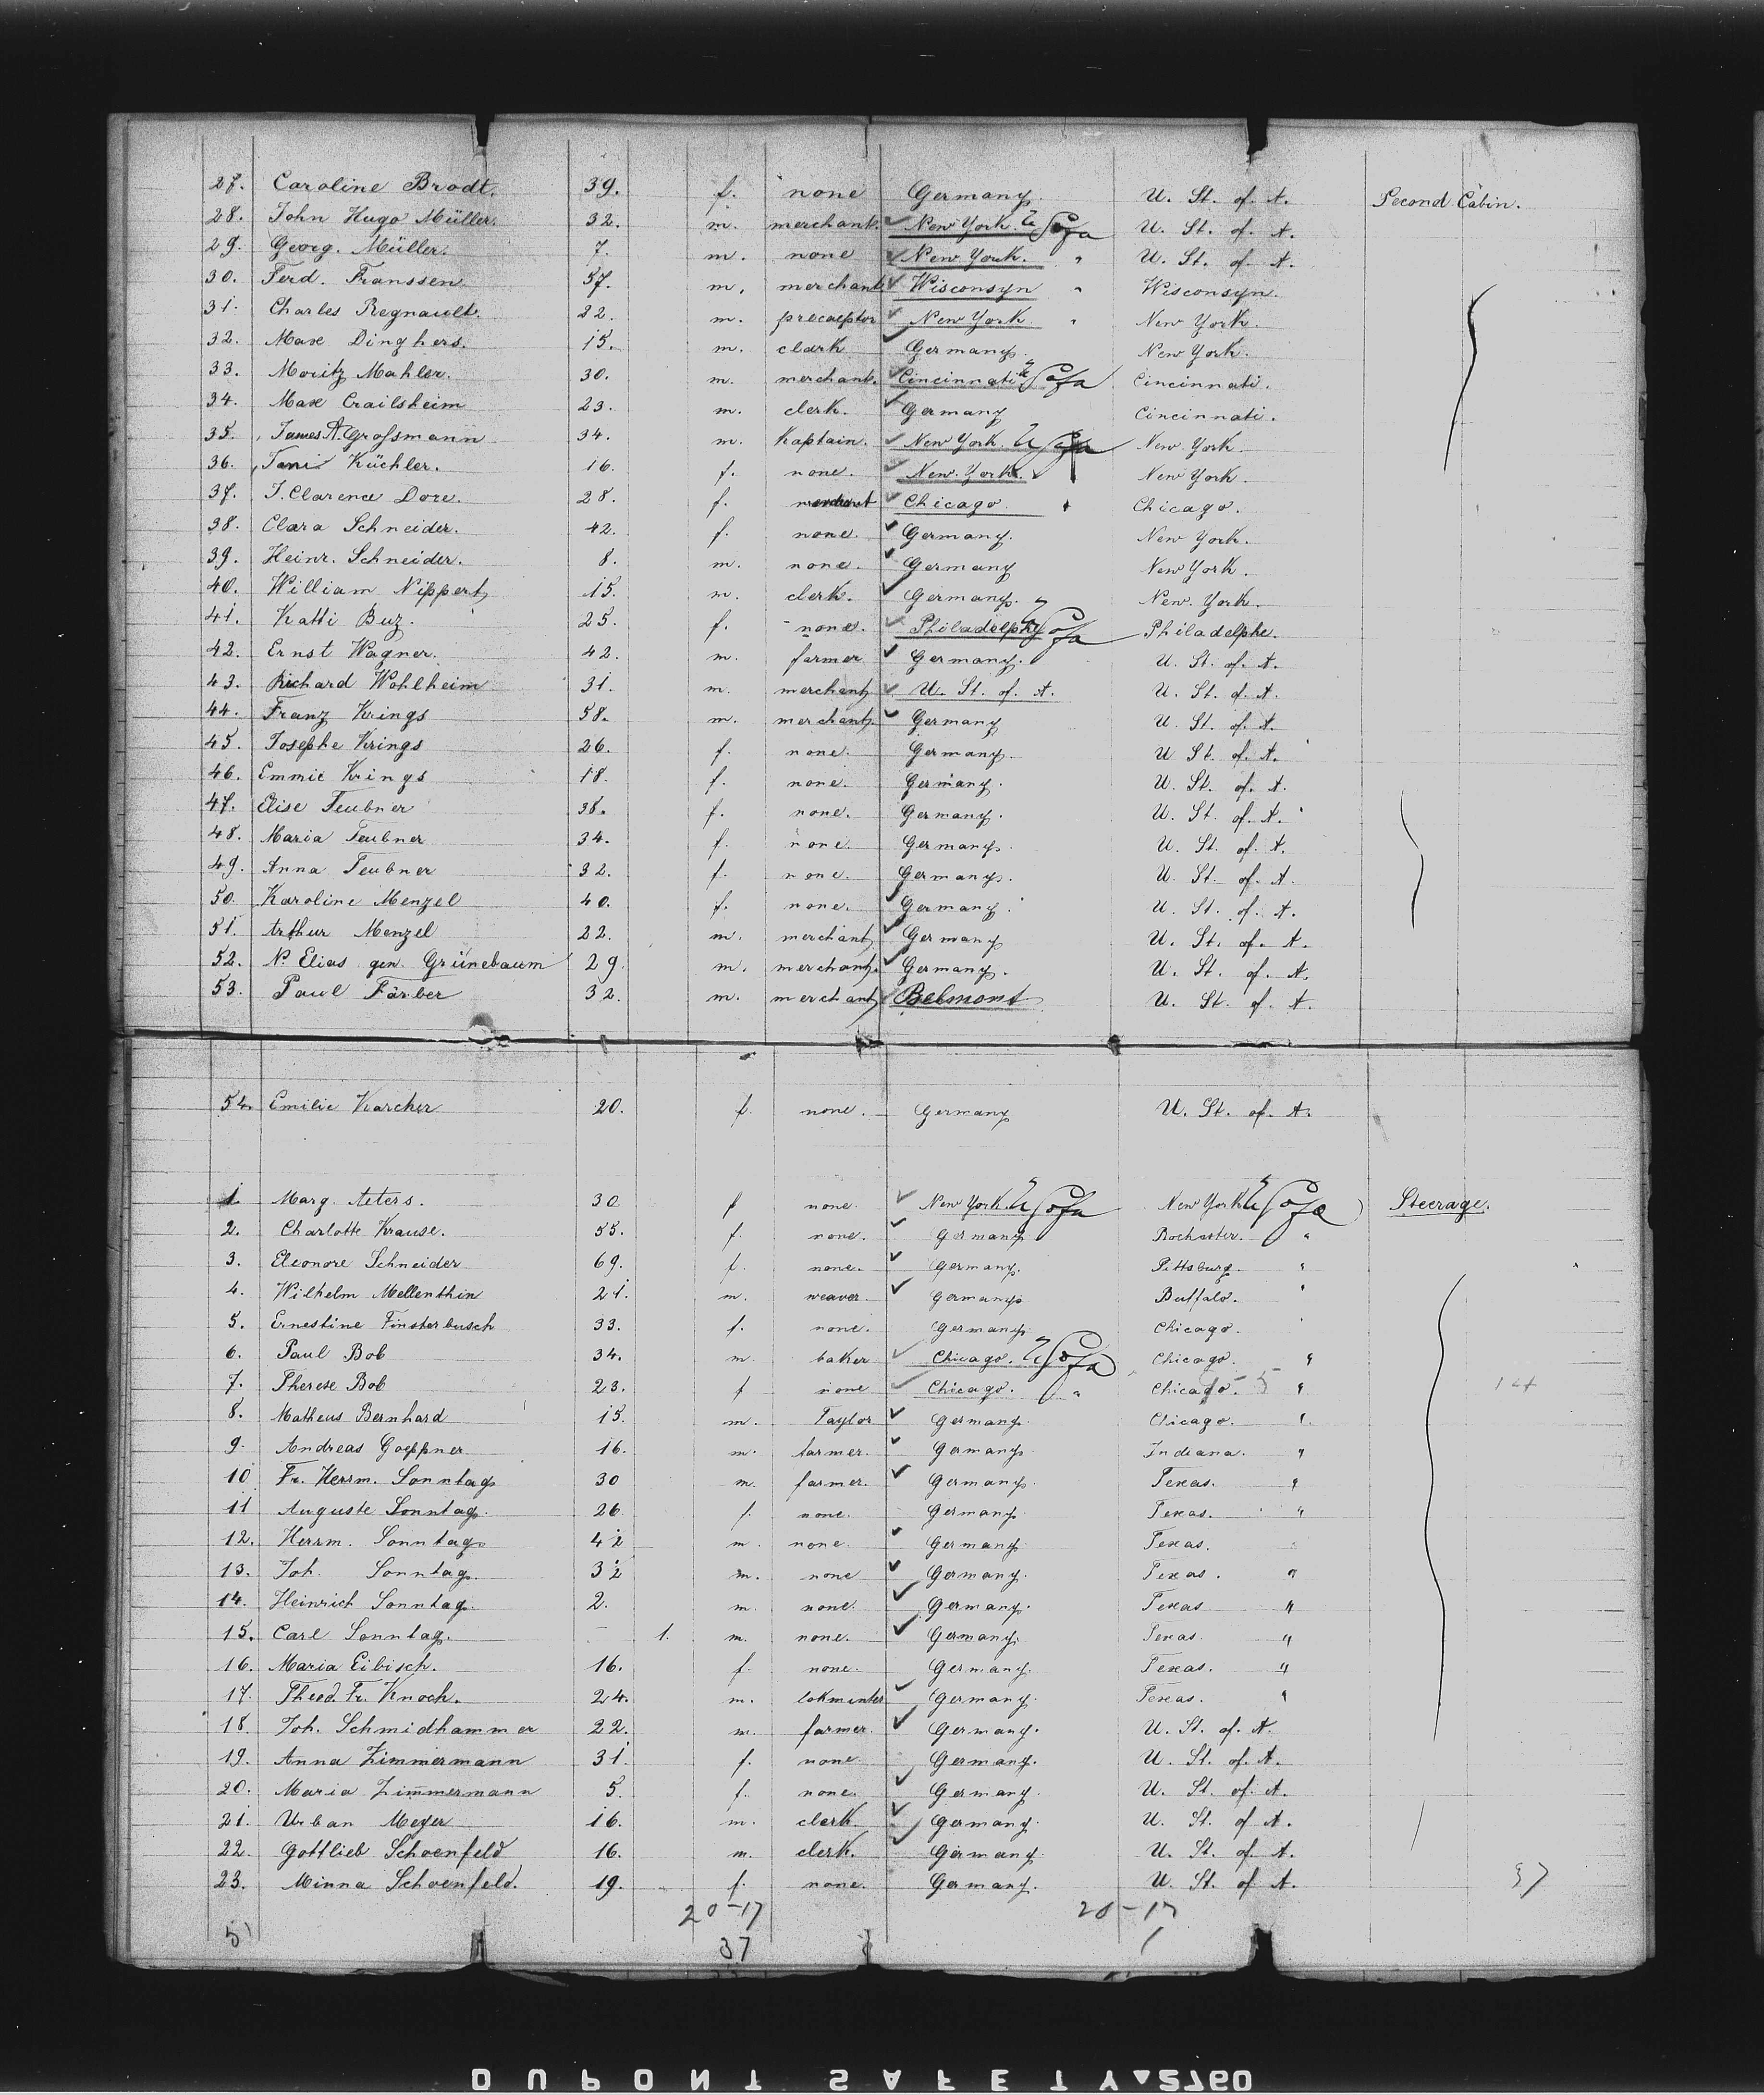 27. Caroline Brodt. 39. f. none Germany. U. St. of. A. Second Cabin.
28. John Hugo Müller. 32. m. merchant. New York. U. St. of. A.
29. Georg. Müller. 7. m. none New York. " U. St. of. A.
30. Ferd. Franssen 57. m. merchant Wisconsyn " Wisconsyn.
31. Charles Regnault. 22. m. precaeptor New York. " New York.
32. Max Dinghers. 15. m. clark Germany. New York.
33. Moritz Mahler. 30. m. merchant. Cincinnati Cincinnati.
34. Max Crailsheim 23. m. clerk. Germany Cincinnati.
35. James A. Grossmann 34. m. Kaptain. New York. New York.
36. Küchler. 16. f. none. New York. New York.
37. J. Clarence Dore. 28. f. Chicago. Chicago.
38. Clara Schneider. 42. f. none. Germany. New York.
39. Heinr. Schneider. 8. m. none. Germany New York.
40. William Nippert 15. m. clerk. Germany. New. York.
41. Katti Buz. 25. f. none. Philadelphe.
42. Ernst Wagner. 42. m. farmer Germany. U. St. of. A.
43. Richard Wohlheim 31. m. merchant U. St. of. A. U. St. of. A.
44. Franz Krings 58. m. merchant. Germany U. St. of. A.
45. Josephe Krings 26. f. none. Germany. U St. of. A.
46. Emmie Krings 18. f. none. Germany. U. St. of. A.
47. Elise Teubner 38. f. none. Germany. U. St. of. A.
48. Maria Teubner 34. f. none. Germany. U. St. of. A.
49. Anna Teubner 32. f. none. Germany. U. St. of. A.
50. Karoline Menzel 40. f. none. Germany. U. St. of. A.
51. Arthur Menzel 22. m. merchant Germany U. St. of. A.
52. N. Elias gen. Grünebaum 29 m. merchant. Germany. U. St. of. A.
53. Paul Färber 32. m. merchant Belmont U. St. of. A.
54. Emilie Karcher 20. f. none. Germany U. St. of. A.
1. Marg. Aeters. 30 f none. New York. New York Steerage.
2. Charlotte Krause. 55. f. none. Germany Rochester. "
3. Eleonore Schneider 69. f. none. Germany. Pittsburg. "
4. Wilhelm Mellenthin 21. m. weaver. Germany Buffalo. "
5. Ernestine Finsterbusch 33. f. none. Germany. Chicago.
6. Paul Bob 34. m baker Chicago. Chicago. "
7. Therese Bob 23. f none Chicago. " Chicago. "
8. Matheus Bernhard 15. m. Taylor Germany. Chicago. "
9. Andreas Goeppner 16. m. farmer. Germany Indiana. "
10 Fr. Herrm. Sonntag 30 m. farmer. Germany. Texas. "
11 Auguste Sonntag. 26 f. none. Germany Texas. "
12. Herrm. Sonntag m. none. Germany Texas. "
13. Joh. Sonntag. m. none Germany. Texas. "
14. Heinrich Sonntag. 2. m. none. Germany. Texas "
15. Carl Sonntag. - 1. m. none. Germany. Texas. "
16. Maria Eibisch. 16. f. none. Germany. Texas. "
17. Theod. Fr. Knoch. 24. m. Germany. Texas. "
18. Joh. Schmidhammer 22. m. farmer. Germany. U. St. of. A.
19. Anna Zimmermann 31. f. none. Germany. U. St. of. A.
20. Maria Zimmermann 5. f. none. Germany. U. St. of. A.
21. Urban Meyer 16. m. clerk. Germany. U. St. of A.
22. Gottlieb Schoenfeld 16. m. clerk. Germany. U. St. of. A.
23. Minna Schoenfeld. 19. f. none. Germany. U. St. of A. 37
20-17 20-17
37
DUPONT SAFETY 2760